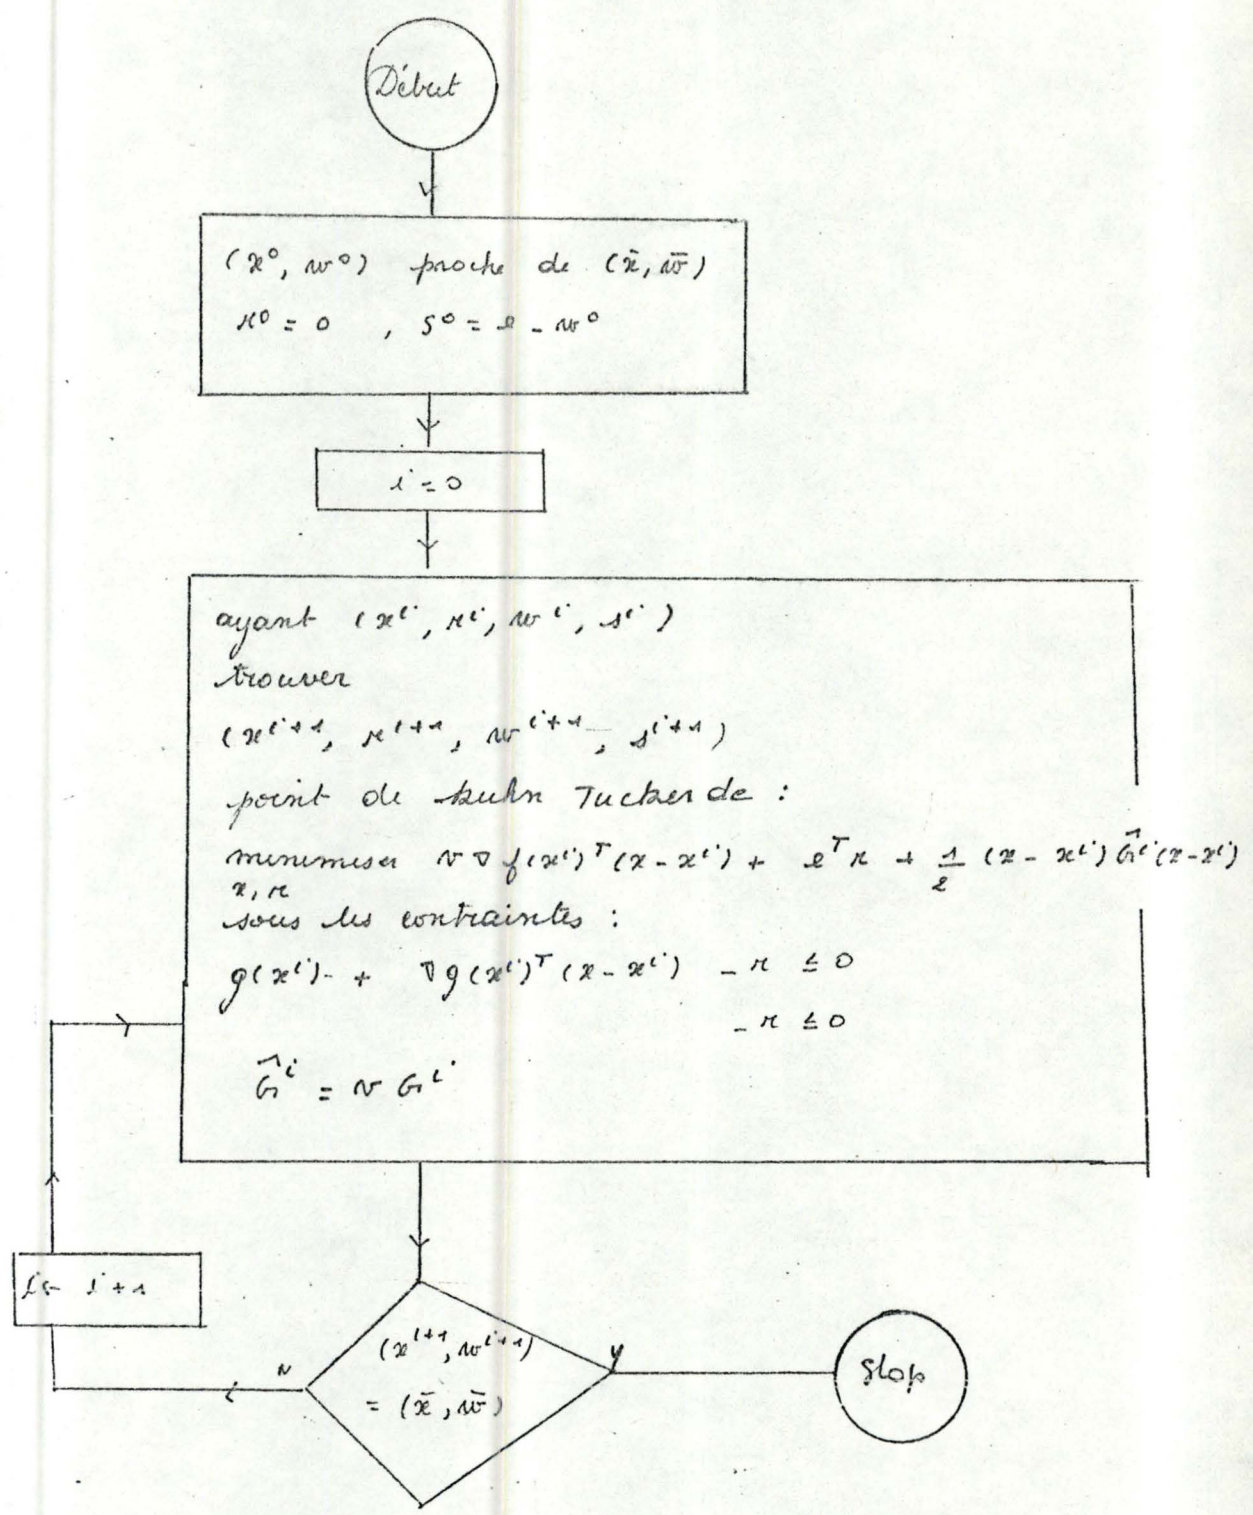 Début
(x⁰, w⁰) proche de (x̄, w̄)
r⁰ = 0 , s⁰ = e - w⁰
i = 0
ayant (xⁱ, rⁱ, wⁱ, sⁱ)
trouver
(xⁱ⁺¹, rⁱ⁺¹, wⁱ⁺¹, sⁱ⁺¹)
point de kuhn Tucker de :
minimiser v ∇ f(xⁱ)ᵀ (x - xⁱ) + eᵀ r + 1/2 (x - xⁱ) Ĝⁱ (x - xⁱ)
x, r
sous les contraintes :
g(xⁱ) + ∇g(xⁱ)ᵀ (x - xⁱ) - r ≤ 0
- r ≤ 0
Ĝⁱ = v Gⁱ
i ← i + 1
(xⁱ⁺¹, wⁱ⁺¹)
= (x̄, w̄)
N
Y
Stop